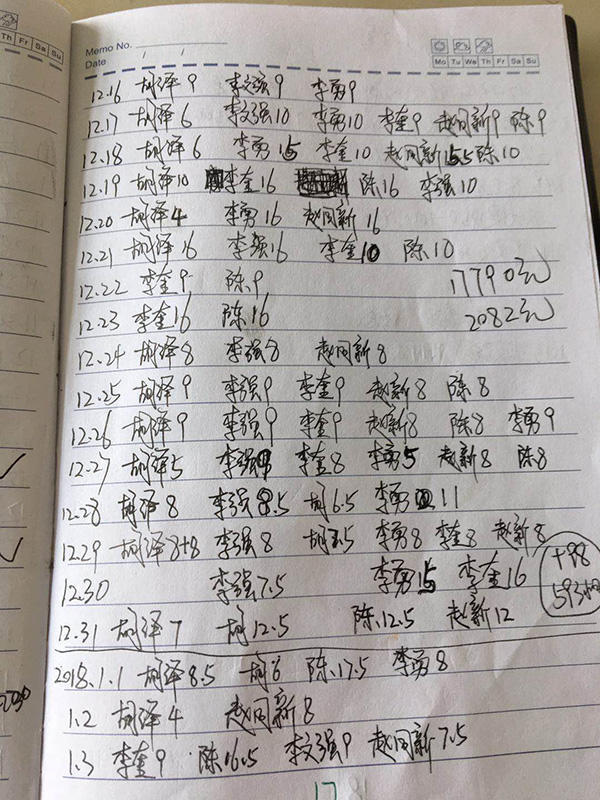 Th Fr Sa Su
Memo No.
Date / /
Mo Tu We Th Fr Sa Su
12.16 胡泽9 李文强9 李勇9
12.17 胡泽6 李文强10 李勇10 李奎9 赵同新9 陈9
12.18 胡泽6 李勇15 李奎10 赵同新15.5 陈10
12.19 胡泽10 李奎16 陈16 李强10
12.20 胡泽4 李勇16 赵同新16
12.21 胡泽16 李强16 李奎10 陈10
12.22 李奎9 陈9 17790元
12.23 李奎16 陈16 2082元
12.24 胡泽8 李强8 赵同新8
12.25 胡泽9 李强9 李奎9 赵新8 陈8
12.26 胡泽9 李强9 李奎9 赵新8 陈8 李勇9
12.27 胡泽5 李强9 李奎8 李勇5 赵新8 陈8
12.28 胡泽8 李强8.5 胡6.5 李勇11
12.29 胡泽8+8 李强8 胡7.5 李勇8 李奎8 赵新8
12.30 李强7.5 李勇15 李奎16
+98
593
12.31 胡泽7 胡12.5 陈12.5 赵新12
2018.1.1 胡泽8.5 胡6 陈17.5 李勇8
1.2 胡泽4 赵同新8
1.3 李奎9 陈16.5 李文强9 赵同新7.5